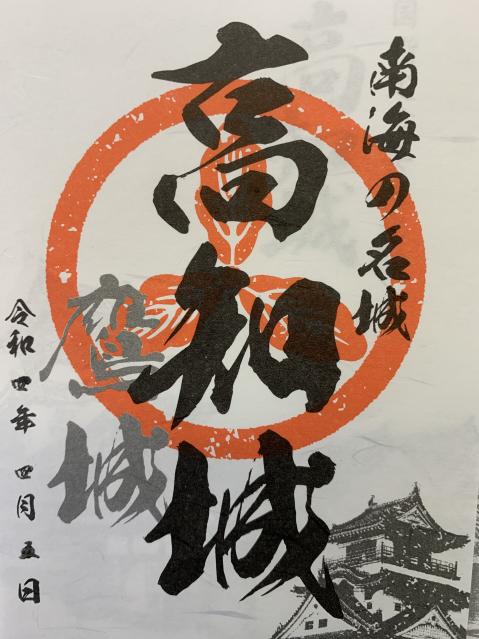 南海の名城
高知城
鷹城
令和四年 四月五日